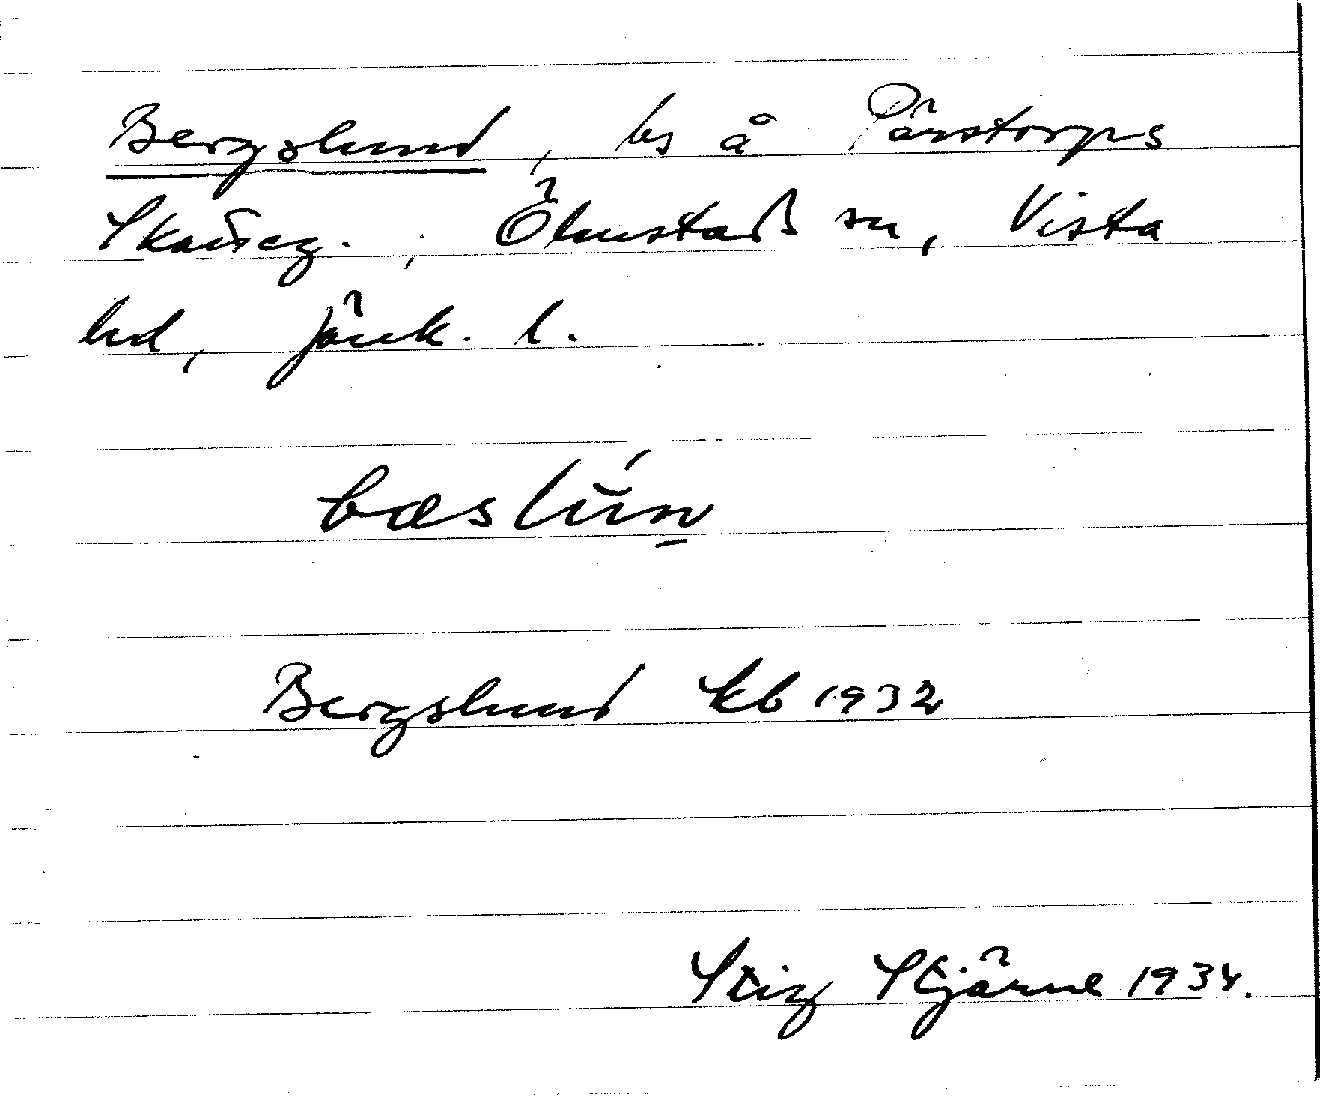 Bergslund, ls å Pärstorps
Skatteg., Ölmstad sn, Vista
hd, Jönk. l.
bæslún
Bergslund kb 1932
Stig Stjärne 1934.